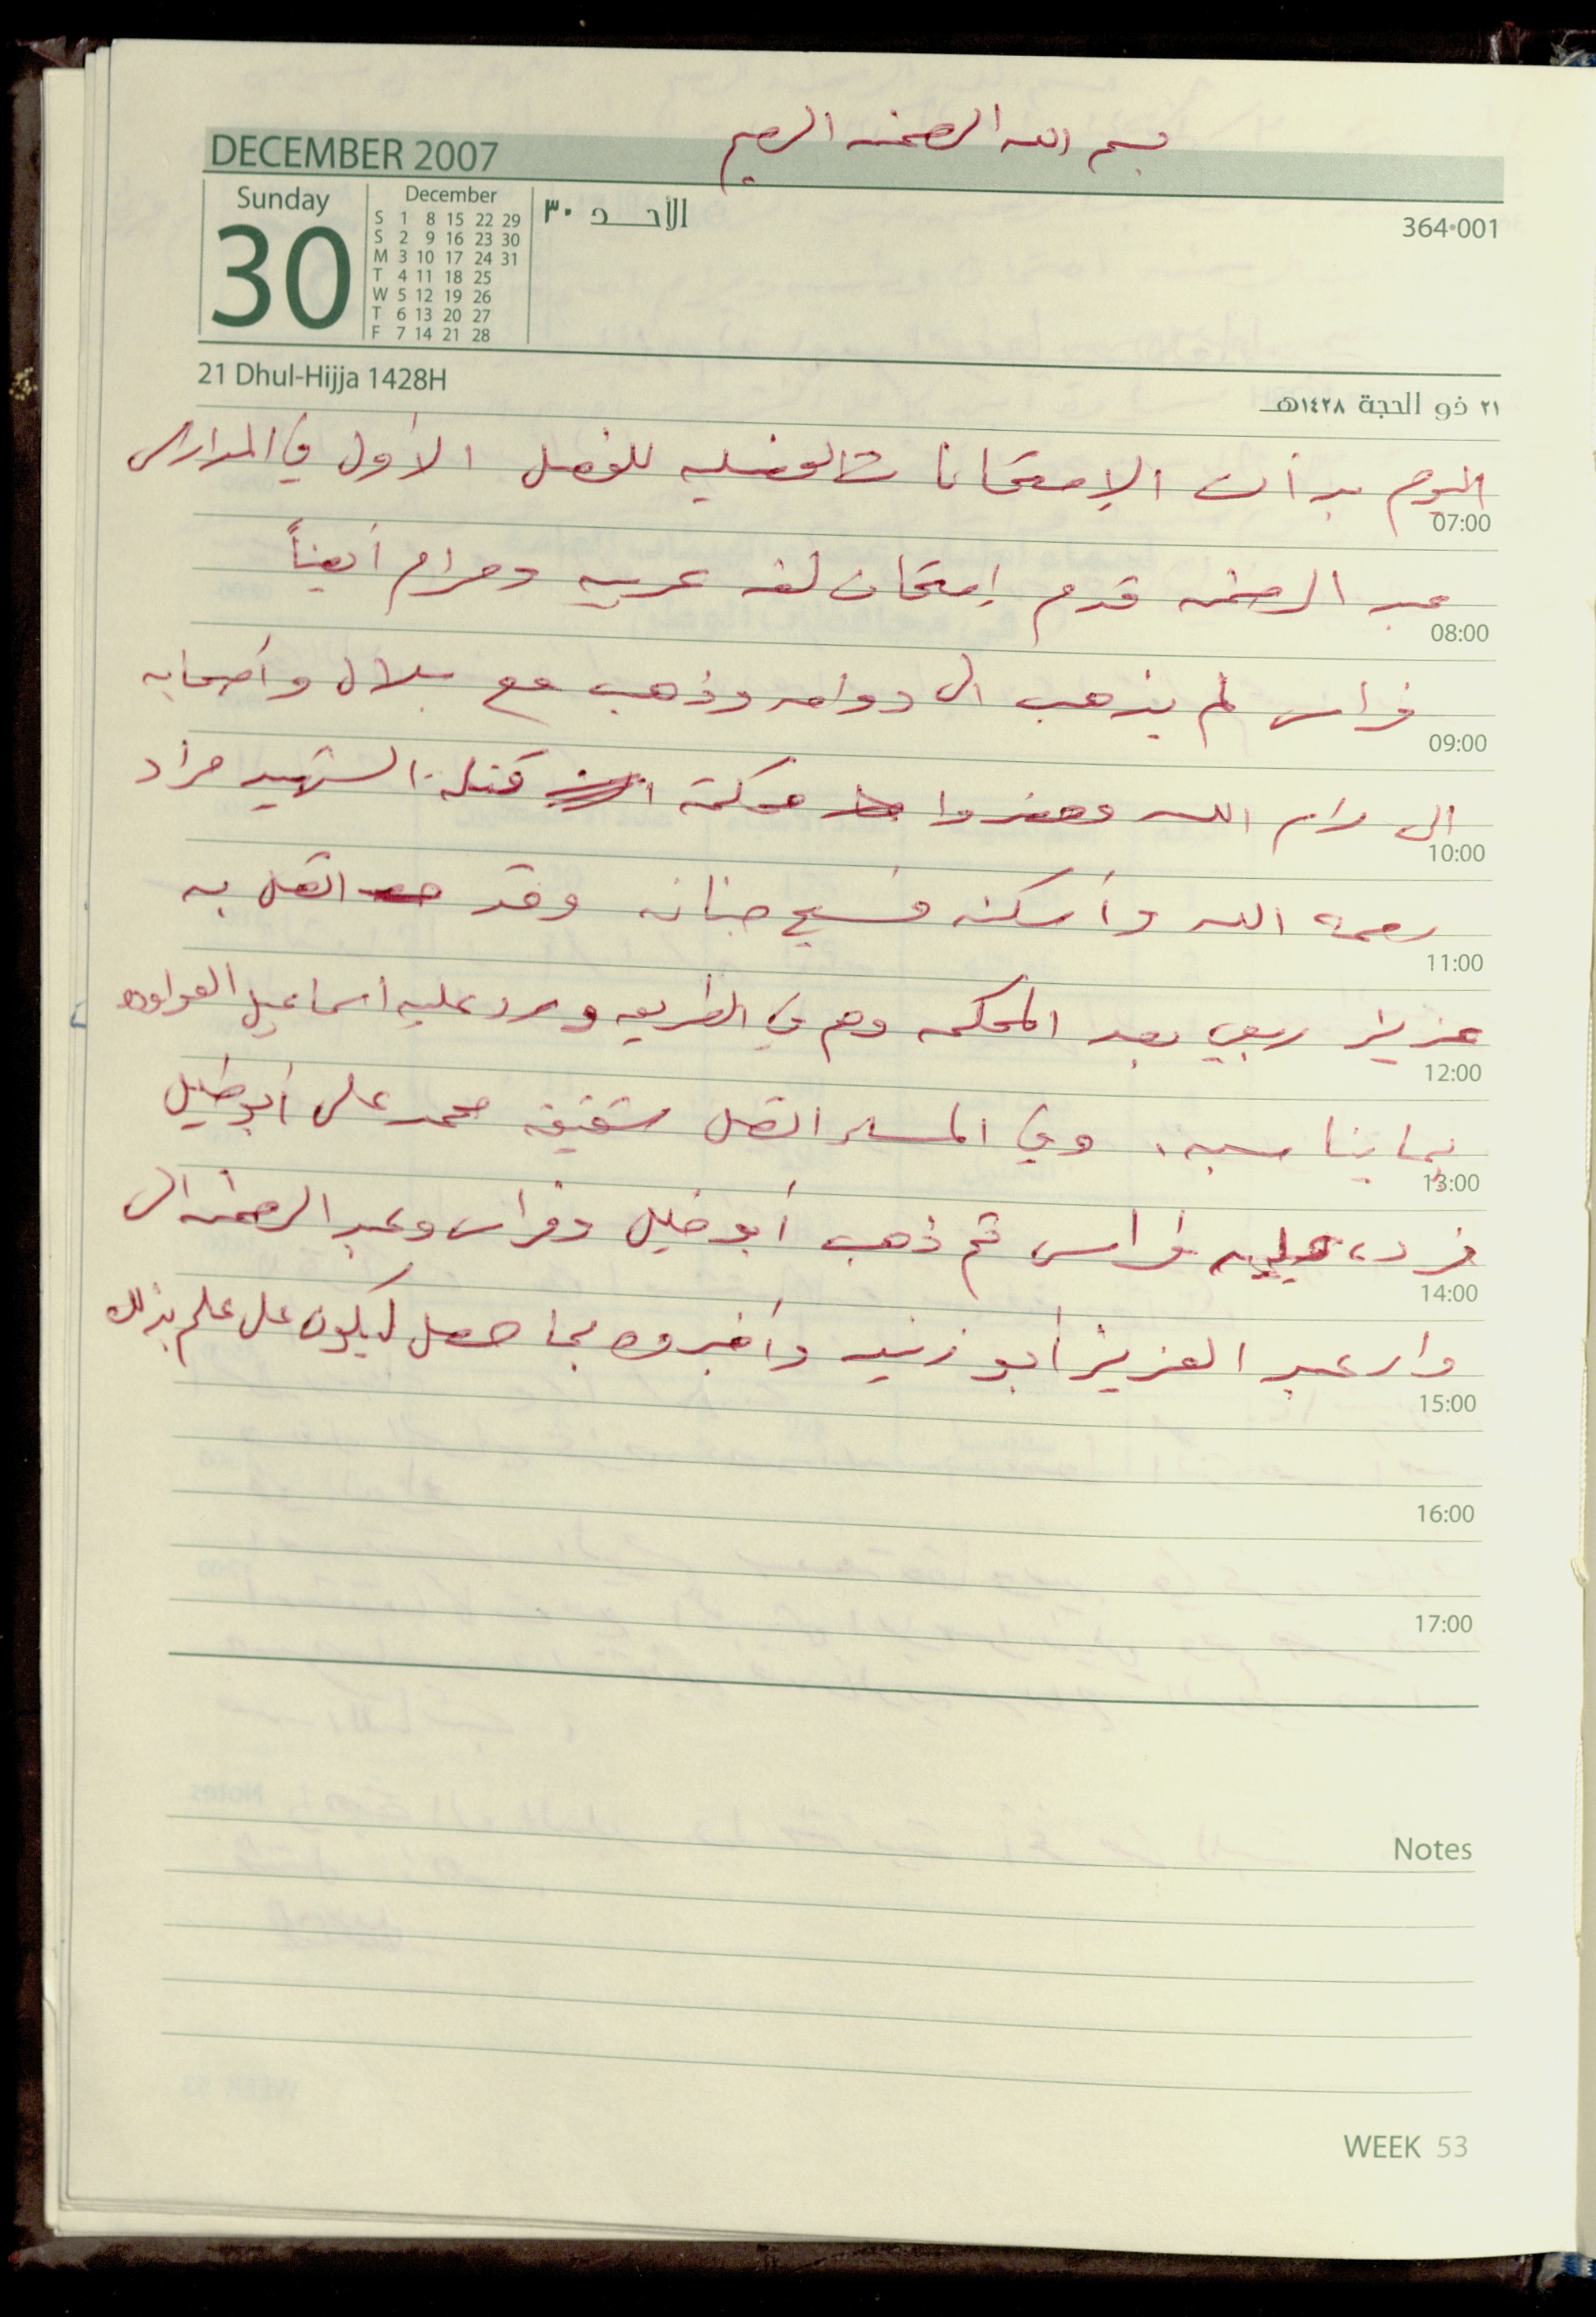 بسم الله الرحمن الرحيم
DECEMBER 2007
Sunday
30
December
S 1 8 15 22 29
S 2 9 16 23 30
M 3 10 17 24 31
T 4 11 18 25
W 5 12 19 26
T 6 13 20 27
F 7 14 21 28
الأحـــد ٣٠
364•001
21 Dhul-Hijja 1428H
٢١ ذو الحجة ١٤٢٨هـ
اليوم بدأت الإمتحانات الفصليه للفصل الأول في المدارس
07:00
عبد الرحمن قدم إمتحان لغه عربيه ومرام أيضاً
08:00
فراس لم يذهب الى دوامه وذهب مع بلال وأصحابه
09:00
الى رام الله وحضروا محكمة قتلة الشهيد مراد
10:00
رحمه الله وأسكنه فسيح جنانه وقد اتصل به
11:00
عزيز ربعي بعد المحكمه وهم في الطريق ورد عليه اسماعيل العواوده
12:00
بما يناسبه. وفي المساء اتصل شقيقه محمد على أبو خليل
13:00
فرد عليه فراس ثم ذهب أبو خليل وفراس وعبد الرحمن الى
14:00
دار عبد العزيز أبو زنيد وأخبروه بما حصل ليكون على علم بذلك
15:00
16:00
17:00
Notes
WEEK 53